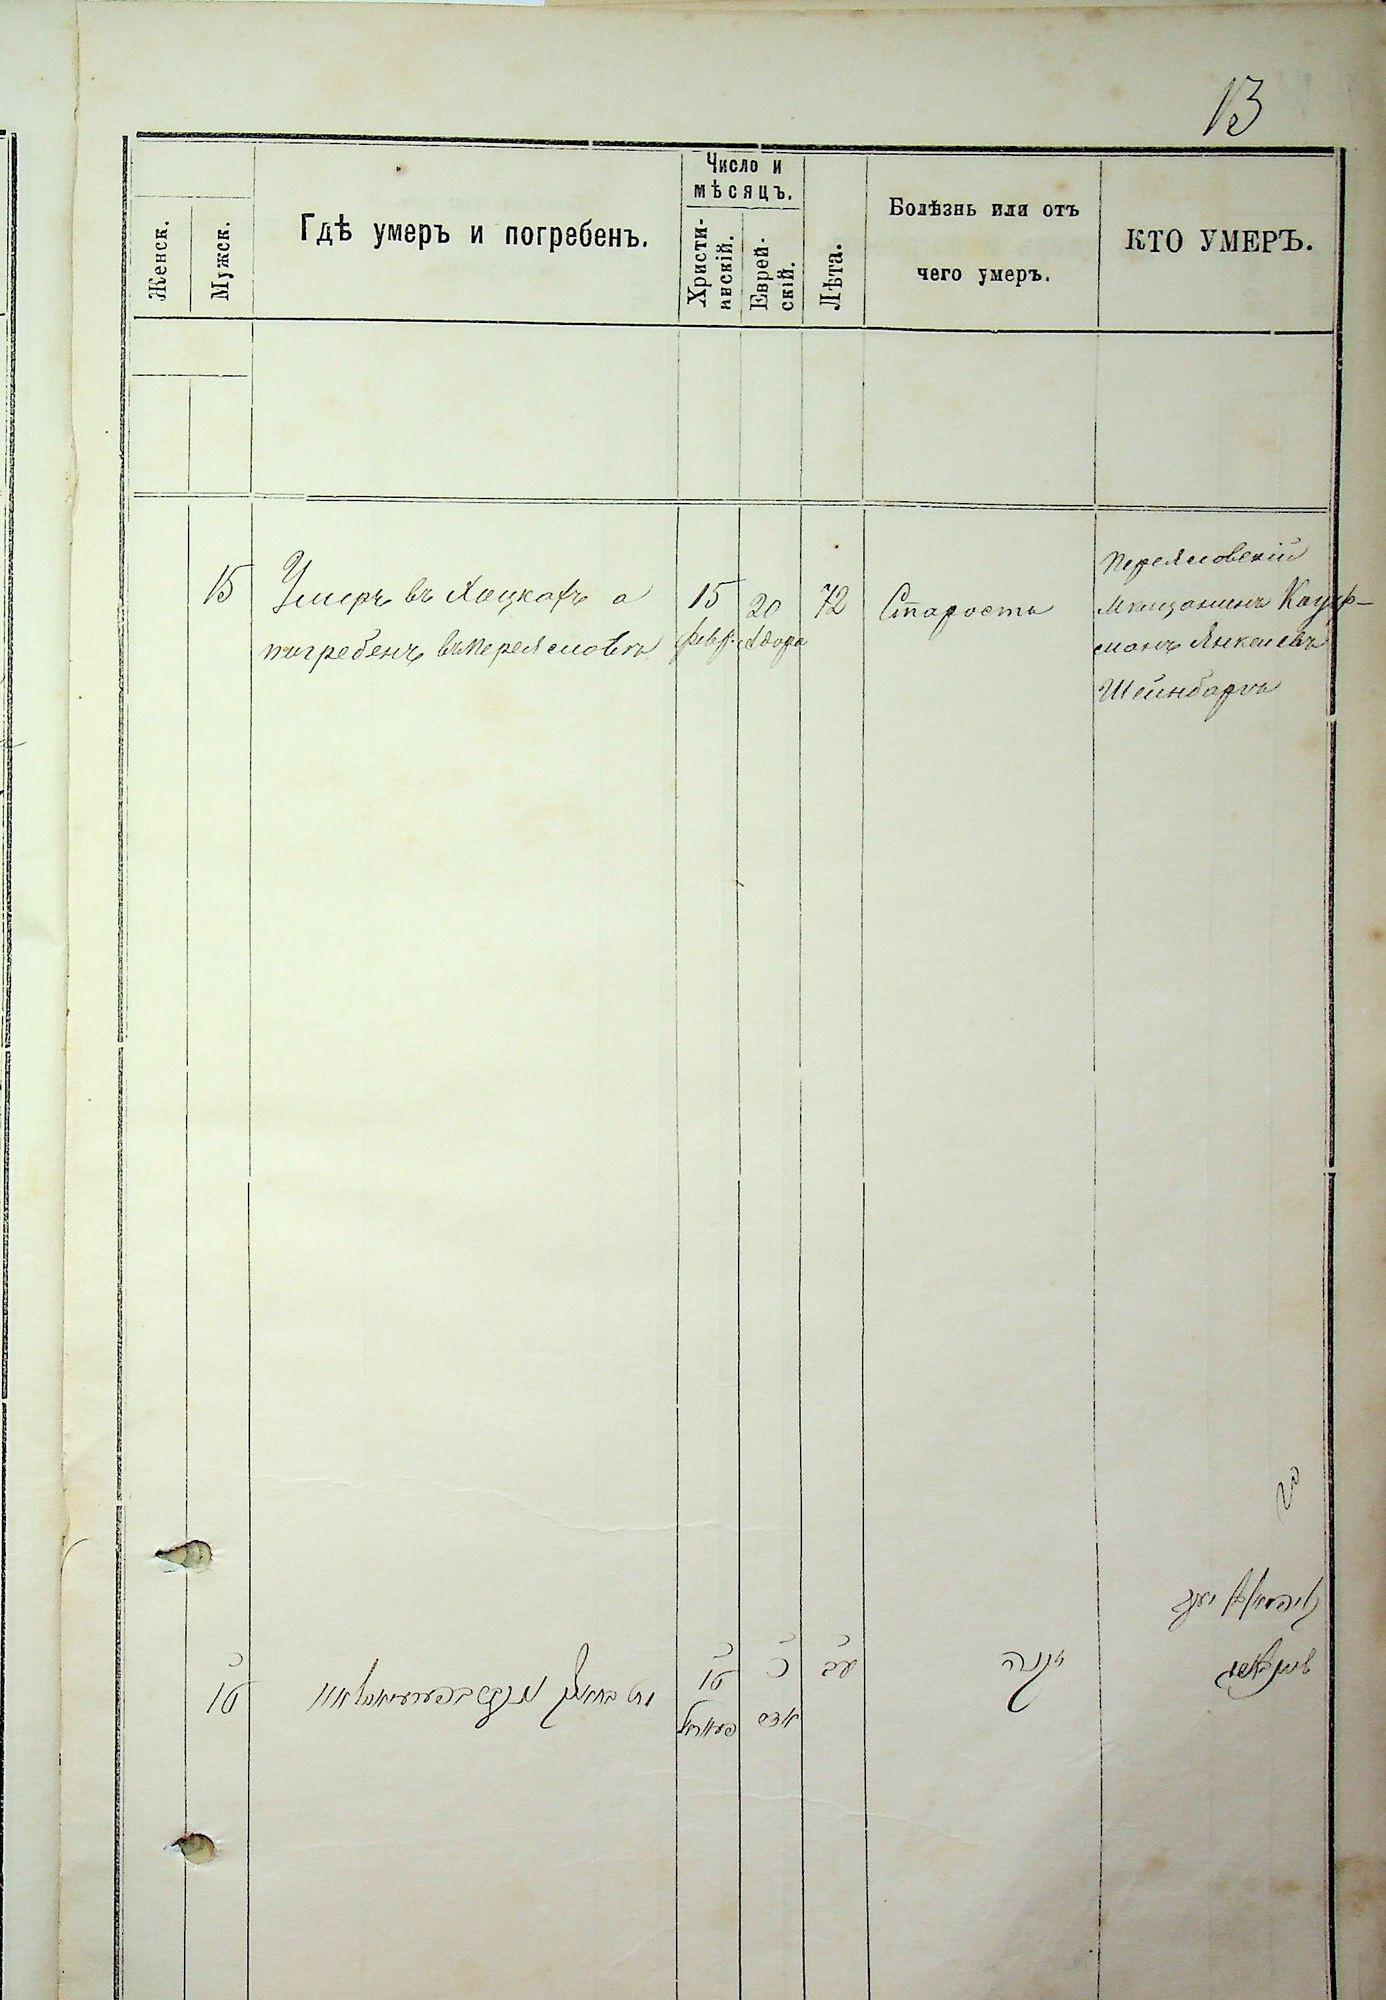 13
Женск.
Мужск.
Гдѣ умеръ и погребенъ.
Число и
мѣсяцъ.
Христи-
анскій.
Еврей-
скій.
Лѣта.
Болѣзнь или отъ
чего умеръ.
КТО УМЕРЪ.
15
Умеръ въ Хоцкахъ а
погребенъ въ Переяславѣ
15
февр.
20
Адара
72
Старость
Переяславскій
мѣщанинъ Кауф-
манъ Янкелевъ
Шейнбаргъ
טו
טו
כ
אדר
עב
זקנה